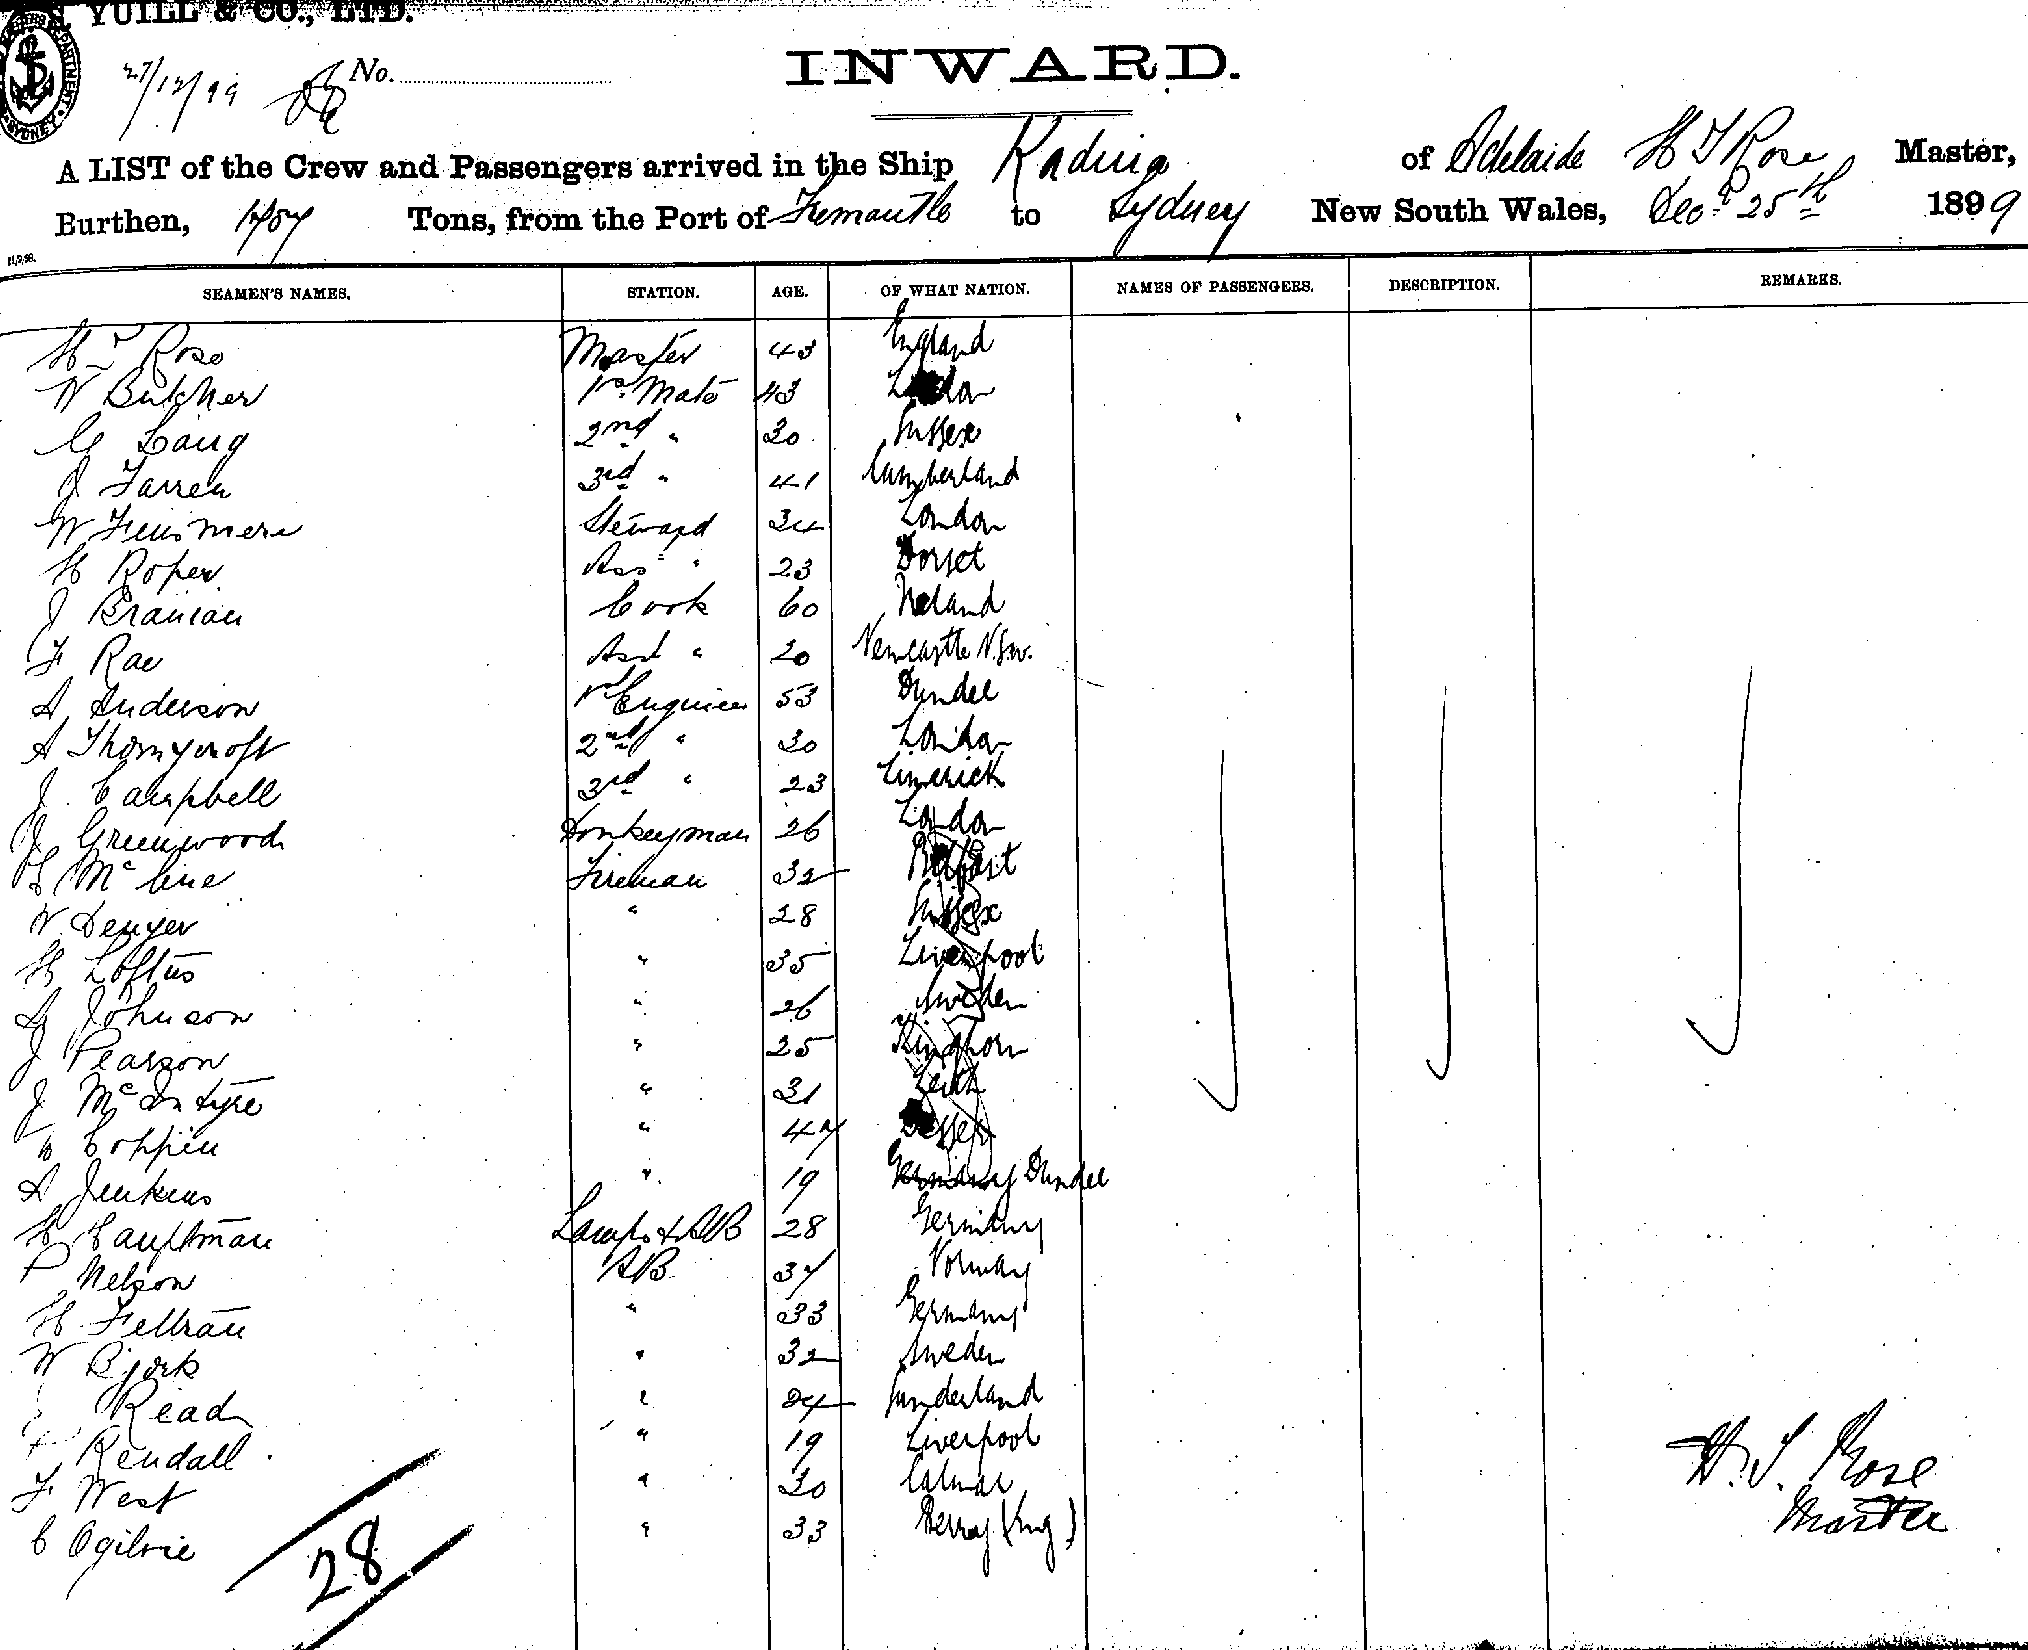 YUILL & CO., LTD.
SYDNEY
27/12/99 No.
INWARD.
A LIST of the Crew and Passengers arrived in the Ship Kadina of Adelaide H T Rose Master,
Burthen, Tons, from the Port of Fremantle to Sydney New South Wales, Decr 25th 1899
SEAMEN'S NAMES. STATION. AGE. OF WHAT NATION. NAMES OF PASSENGERS. DESCRIPTION. REMARKS.
H T Rose Master 43 England
W Butcher 1st Mate 43 London
Laug 2nd " 30 Sussex
J Farren 3rd " 41 Cumberland
W Finsmere Steward 34 London
H Roper Ass " 23 Dorset
J Branian Cook 60 Ireland
F Rae Asst " 20 Newcastle N.S.W.
A Anderson 1st Engineer 53 Dundee
A Thornycroft 2nd " 30 London
J Campbell 3rd " 23 Limerick
J Greenwood Donkeyman 26 London
Fireman 32 Belfast
W Denyer " 28 Sussex
H Loftus " 35 Liverpool
A Johnson " 26 Sweden
J Pearson " 25 Kinghorn
J McIntyre " 31 Leith
Coppin " 47
A Jenkins " 19 Germany Dundee
H Hauptman Lamps & AB 28 Germany
P Nelson AB 37 Norway
H Feltrau " 33 Germany
W Bjork " 32 Sweden
Read " 24 Sunderland
Kendall " 19 Liverpool
F West " 30 Calmar
C Ogilvie " 33 Derry (Eng)
28
H. T. Rose
Master